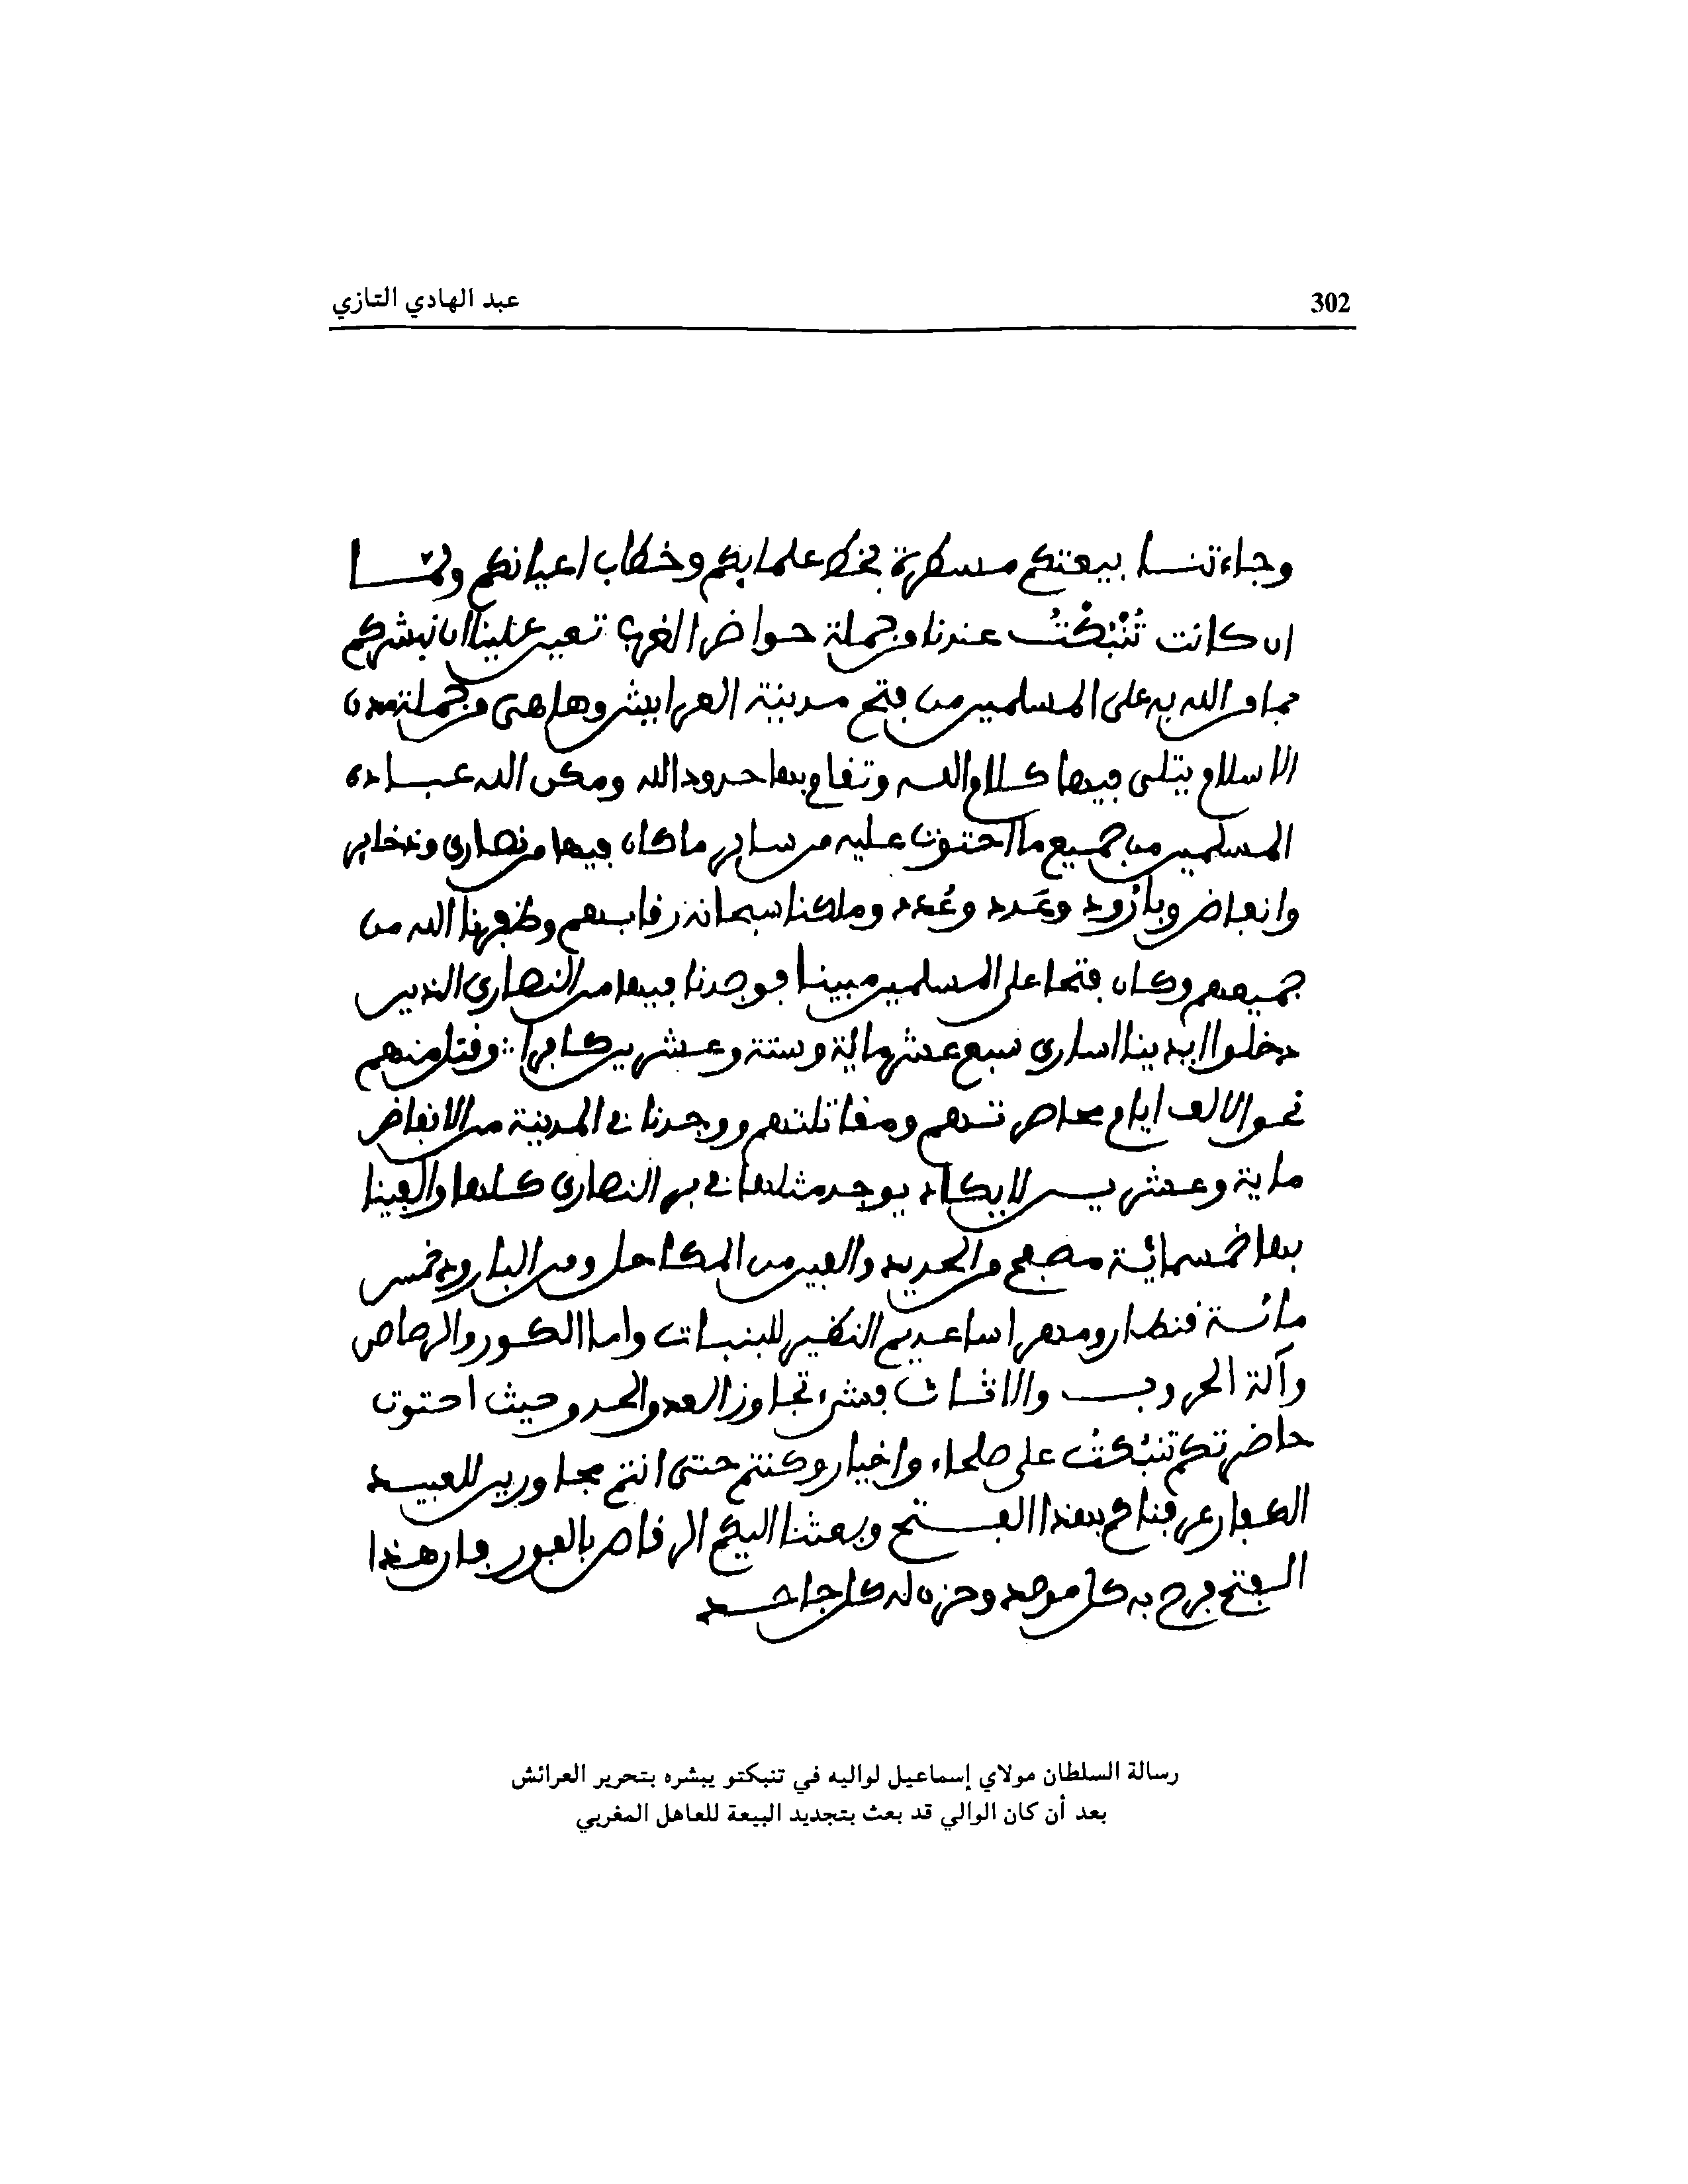 302
عبد الهادي التازي
وجاءتنا بيعتكم مسطرة بخط علمايكم وخطاب اعيانكم ولما
ان كانت تُنْبُكْتُ عندنا من جملة حواضر الغرب تعين علينا ان نبشركم
بما من الله به على المسلمين من فتح مدينة العرايش وها هى من جملة مدن
الاسلام يتلى فيها كلام الله وتقام بها حدود الله ومكن الله عباده
المسلمين من جميع ما احتوت عليه من ساير ما كان فيها من نصارى وذخاير
وانفاض وبارود وعَدد وعُدد وملكنا سبحانه رقابهم وظفرنا الله من
جميعهم وكان فتحا على المسلمين مبينا فوجدنا فيها من النصارى الذين
دخلوا لايدينا اسارى سبع عشر ماية وستة وعشرين كافرا وقتل منهم
نحو الالف ايام محاصرتهم ومقاتلتهم ووجدنا في المدينة من الانفاض
ماية وعشرين لا يكاد يوجد مثلها في بر النصارى كلها والفينا
بها خمسمائة مدفع من الحديد والفين من المكاحل ومن البارود خمس
مائة قنطار ومهراسا عديم النظير للبنبات واما الكور والرصاص
وآلة الحروب والاثاث فشىء تجاوز العد والحد وحيث احتوت
حاضرتكم تنبُكتُ على صلحاء واخيار وكنتم حتى انتم مجاورين للعبيد
الكفار عرفناكم بهذا الفتح وبعثنا اليكم الرقاص بالفور فان هذا
الفتح فرح به كل موحد وحزن له كل جاحد
رسالة السلطان مولاي إسماعيل لواليه في تنبكتو يبشره بتحرير العرائش
بعد أن كان الوالي قد بعث بتجديد البيعة للعاهل المغربي